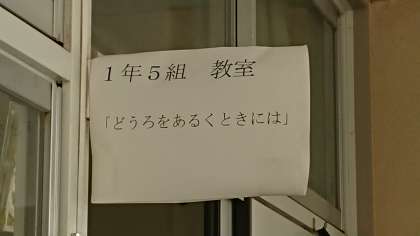 １年５組　教室
「どうろをあるくときには」